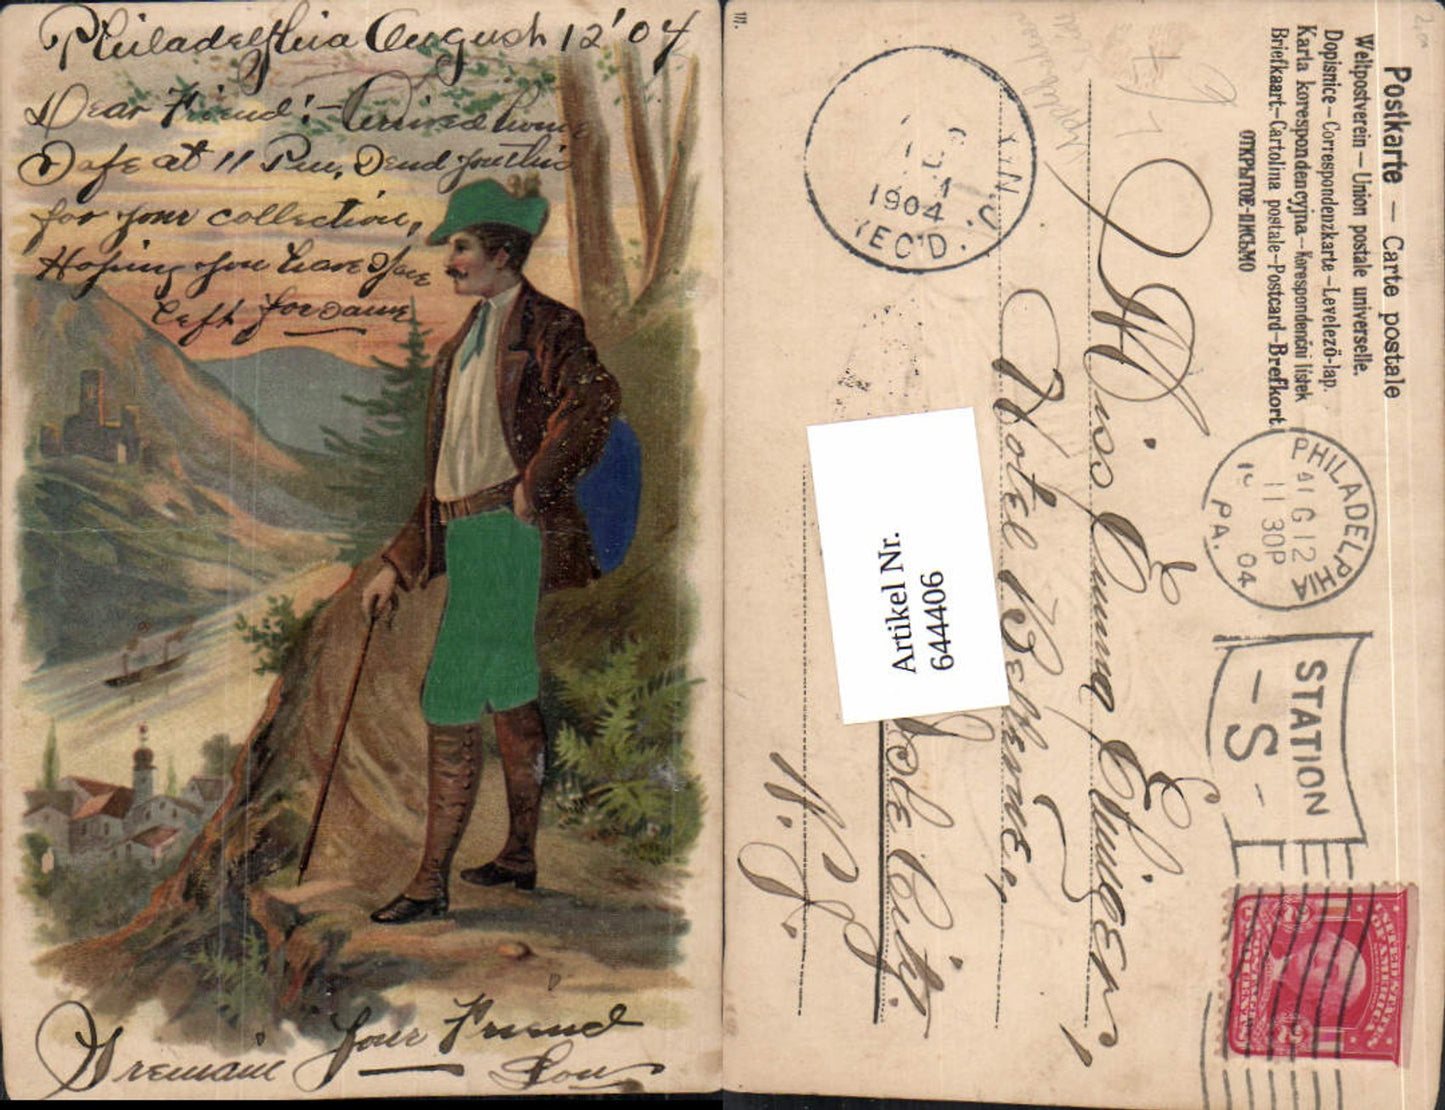 Philadelphia August 12 '04
Dear Friend:- Arrived home
Safe at 11 Pm, Send you this
for your collection,
Hoping you have
left for same
I remain
Your Friend
Lou
111.
Postkarte — Carte postale
Weltpostverein — Union postale universelle.
Dopisnice — Correspondenzkarte — Levelező-lap.
Karta korespondencyjna — Korespondenční lístek
Briefkaart — Cartolina postale — Postcard — Brefkort
ОТКРЫТОЕ-ПИСЬМО
1904
REC'D.
N.J.
PHILADELPHIA
AUG 12
11 30P
04
PA.
STATION
- S -
UNITED STATES
OF AMERICA
2 2
Miss Emma Ehinger
Hotel Bellevue,
Isle City.
N. J.
Artikel Nr.
644406